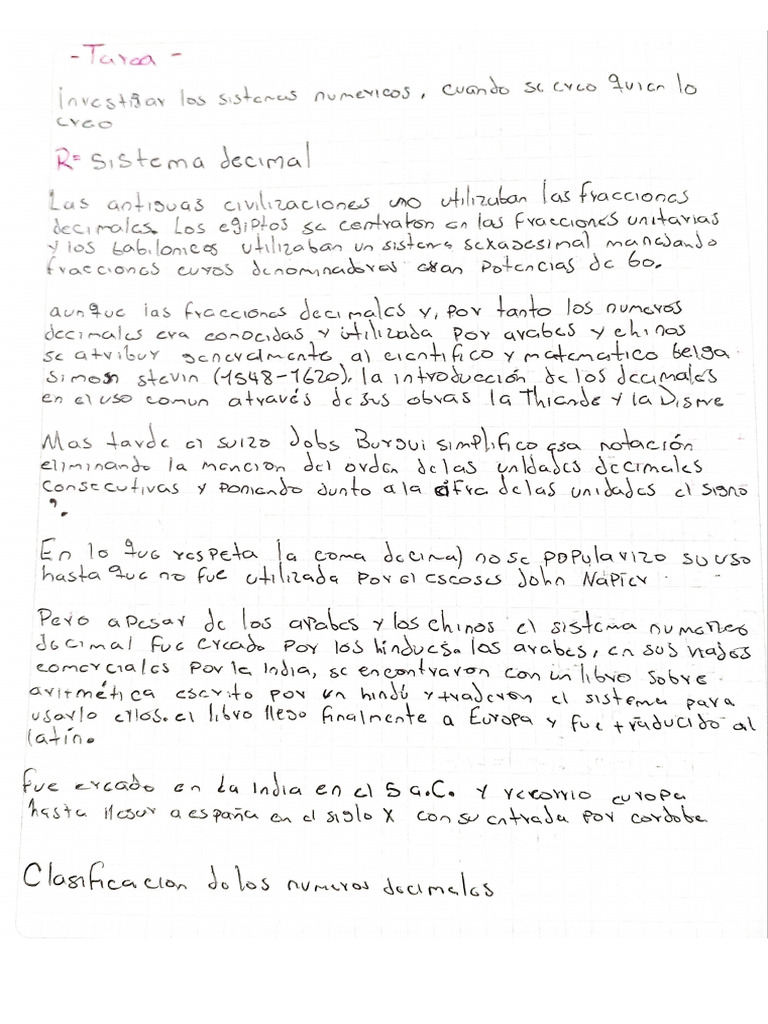 - Tarea -
Investigar los sistemas numericos, cuando se creo quien lo
creo
R= sistema decimal
Las antiguas civilizaciones no utilizaban las fracciones
decimales. Los egiptos se centraton en las fracciones unitarias
y los babilonicos utilizaban un sistema sexadesimal manejando
fracciones cuyos denominadores eran potencias de 60.
aunque las fracciones decimales y, por tanto los numeros
decimales era conocidas y utilizada por arabes y chinos
se atribuy generalmente al cientifico y matematico belga
Simon stevin (1548-1620), la introducción de los decimales
en el uso comun através de sus obras la Thiende y la Disme
Mas tarde el suizo Jobs Burgui simplifico esa notación
eliminando la mencion del orden de las unidades decimales
consecutivas y poniendo junto a la cifra de las unidades el signo
°.
En lo que respeta la coma decimal no se popularizo su uso
hasta que no fue utilizada por el escoses John Napier.
Pero apesar de los arabes y los chinos el sistema numerico
decimal fue creado por los hindues. los arabes, en sus viajes
comerciales por la India, se encontraron con un libro sobre
aritmética escrito por un hindú y trajeron el sistema para
usarlo ellos. el libro llego finalmente a Europa y fue traducido al
latín.
fue creado en la India en el 5 a.C. y recorrio europa
hasta llegar a españa en el siglo X con su entrada por cordoba
Clasificacion de los numeros decimales